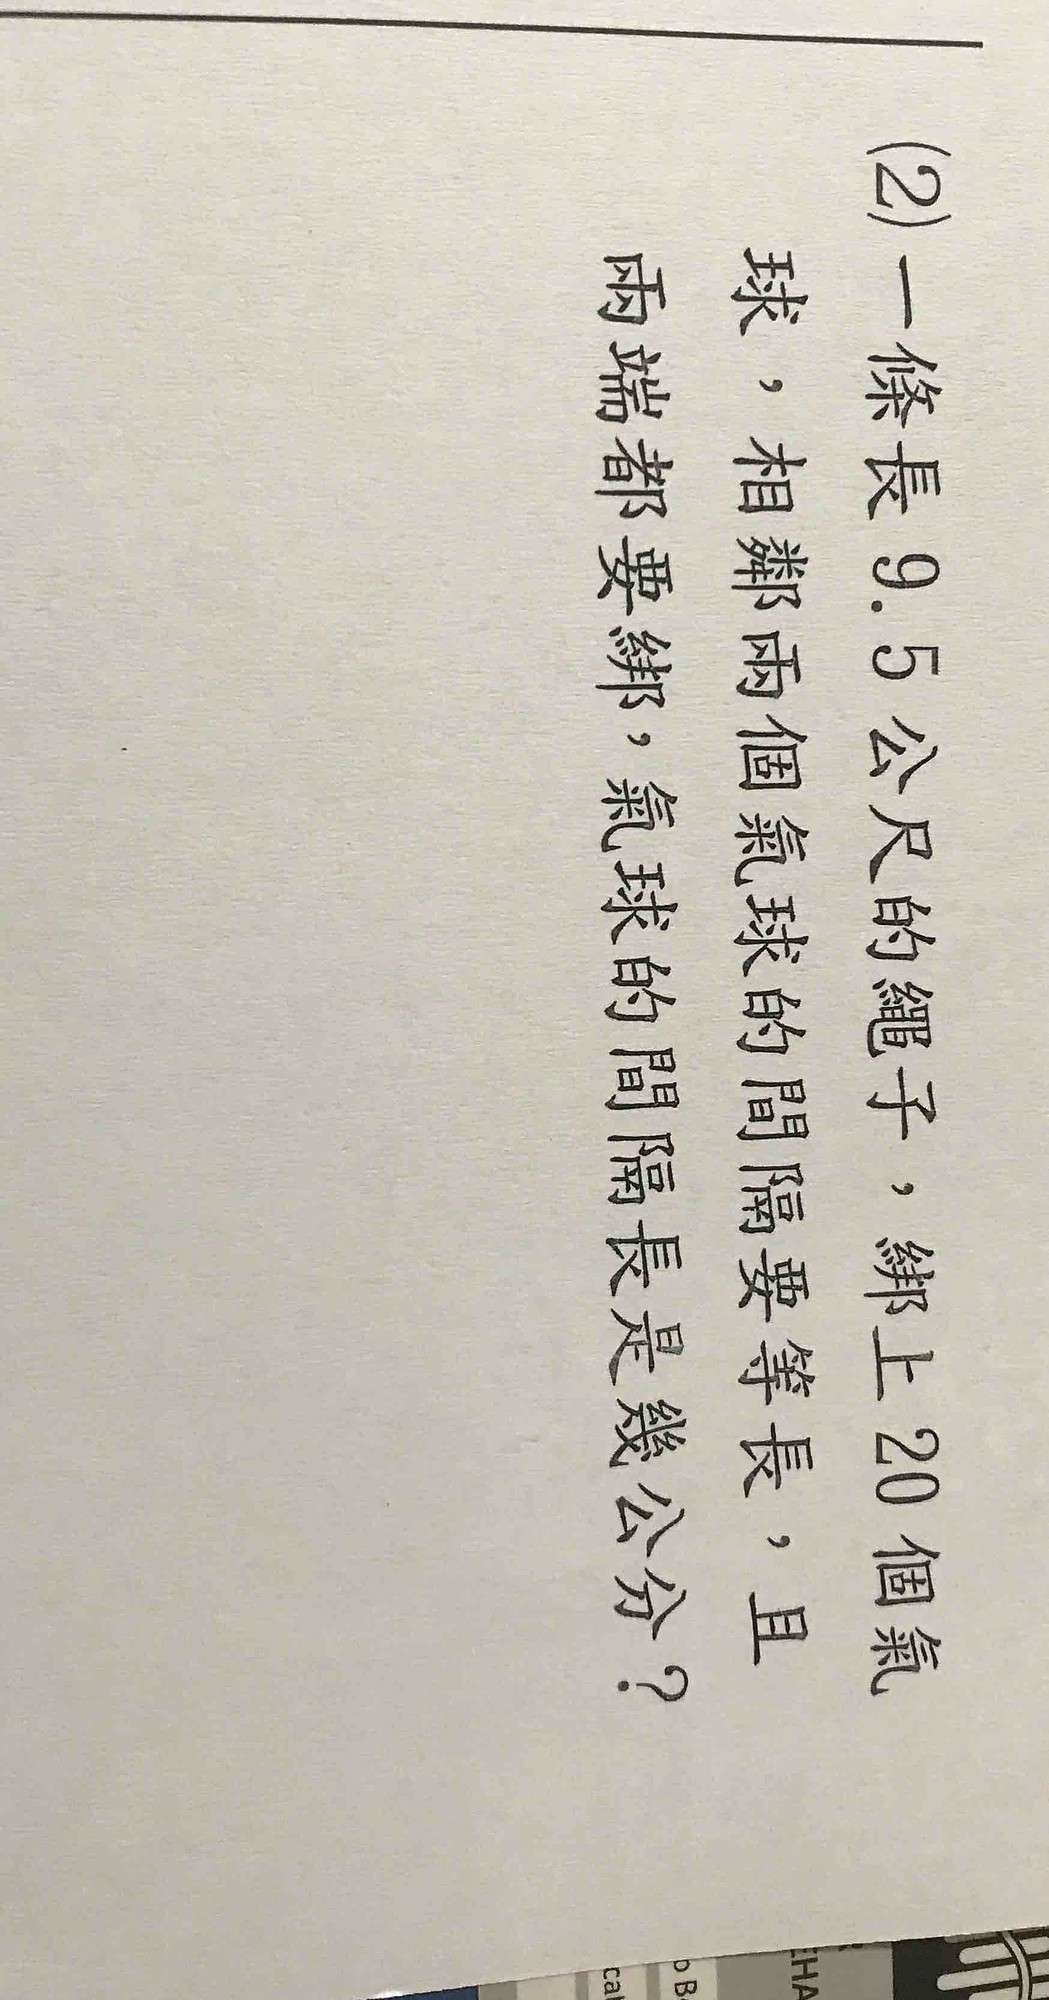 (2)一條長 9.5 公尺的繩子，綁上 20 個氣
球，相鄰兩個氣球的間隔要等長，且
兩端都要綁，氣球的間隔長是幾公分？
EHA
o B
cal